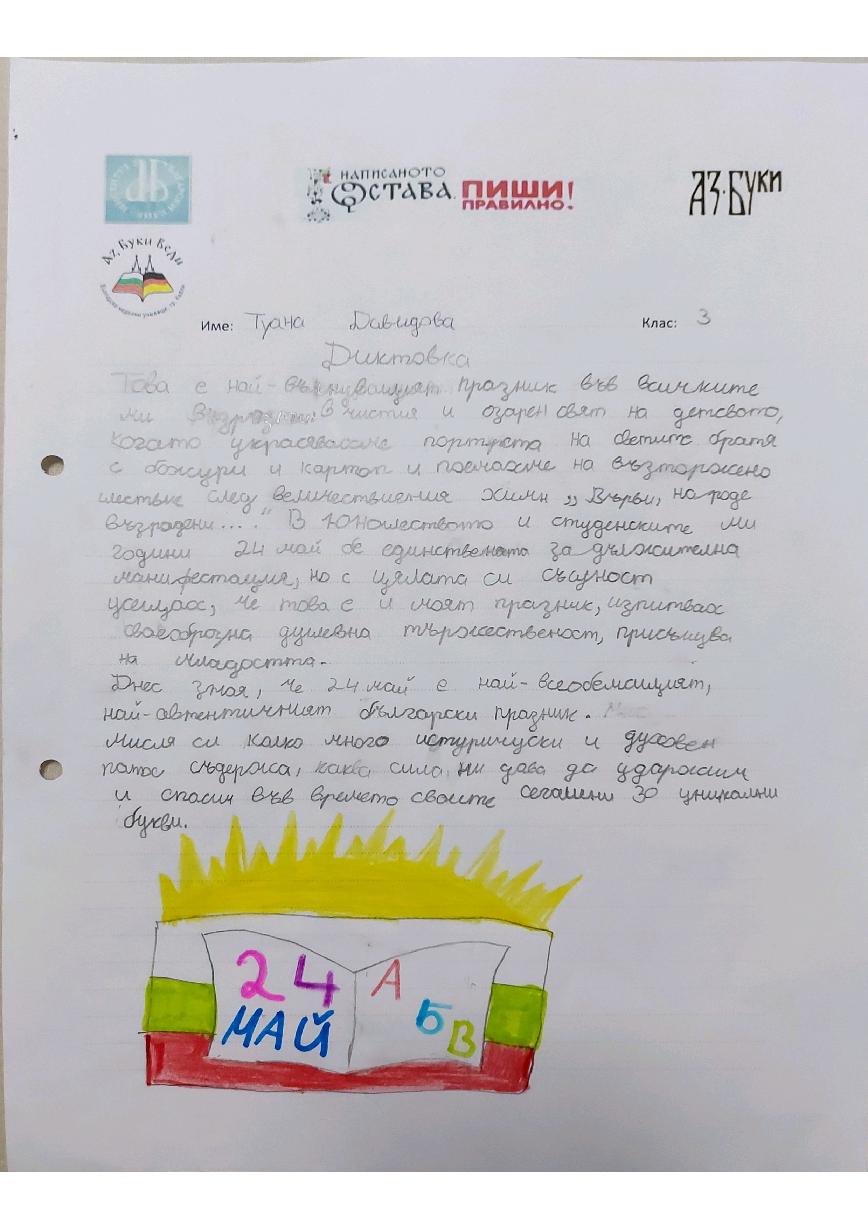 НАПИСАНОТО
ОСТАВА. ПИШИ
ПРАВИЛНО!
АЗ·БУКИ
Аз, Буки Веди
Име: Туана Давидова Клас: 3
Диктовка
Това е най-вълнуващият празник във всичките
ми в чистия и озарен свят на детството,
когато украсявахме портрета на светите братя
с божури и картоп и поемахме на възторжено
шествие след величествения химн „Върви, народе
възродени...." В юношеството и студенските ми
години 24 май бе единствената задължителна
манифестация, но с цялата си същност
усещах, че това е и моят празник, изпитвах
своеобразна душевна тържественост, присъщува
на младостта.
Днес зная, че 24 май е най-всеобемащият,
най-автентичният български празник.
Мисля си колко много истуричуски и духовен
патос съдържа, каква сила ни дава да удържим
и спасим във времето своите сегашни 30 уникални
букви.
24 А
МАЙ Б
В